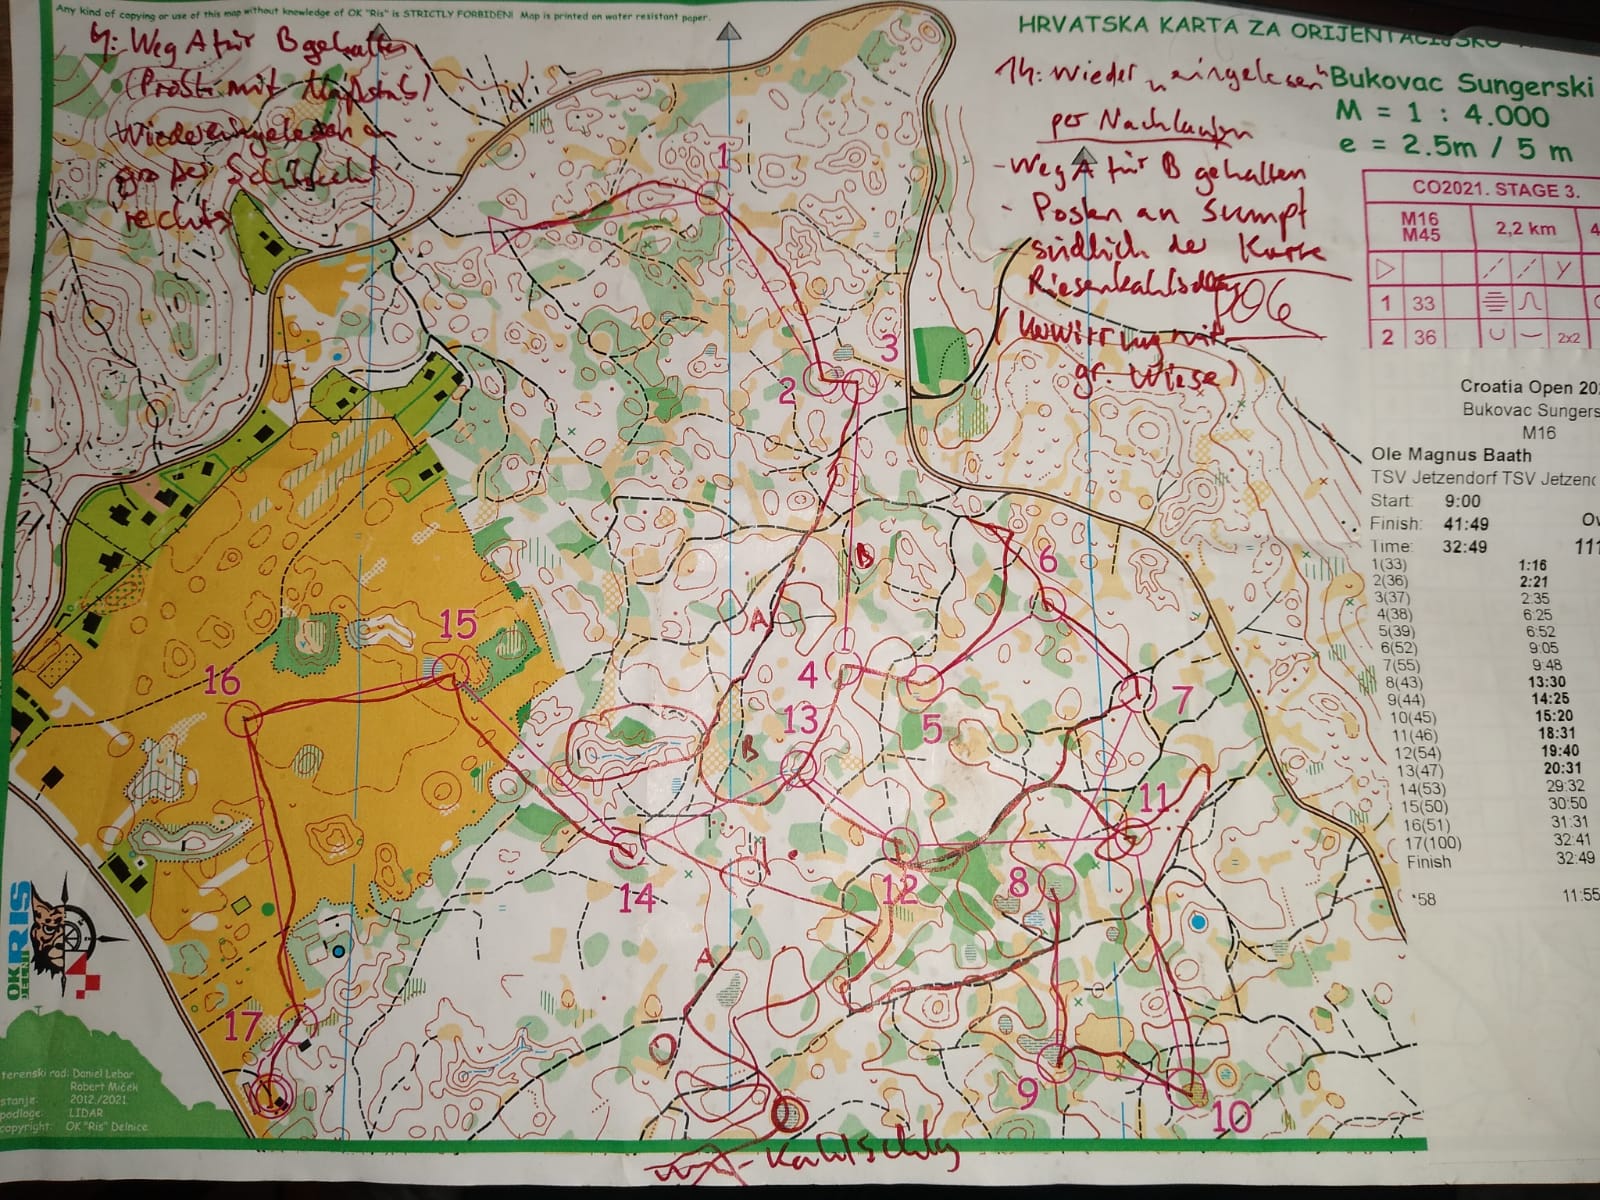 Any kind of copying or use of this map without knowledge of OK "Ris" is STRICTLY FORBIDEN! Map is printed on water resistant paper.
4: Weg A für B gehalten
(Prosti mit Maßstab)
Wiedereingelesen an
großer Schlucht
rechts
HRVATSKA KARTA ZA ORIJENTACIJSKO
Bukovac Sungerski
M = 1 : 4.000
e = 2.5m / 5 m
14: Wieder „eingelesen"
per Nachlaufen
- Weg A für B gehalten
- Posten an Sumpf
- südlich der Karte
Riesenkahlschlag
(Verwirrung mit
gr. Wiese)
CO2021. STAGE 3.
M16
M45
2,2 km
4
1 33
2 36 2x2
Croatia Open 20
Bukovac Sungers
M16
Ole Magnus Baath
TSV Jetzendorf TSV Jetzend
Start: 9:00
Finish: 41:49
Time: 32:49 111
1(33) 1:16
2(36) 2:21
3(37) 2:35
4(38) 6:25
5(39) 6:52
6(52) 9:05
7(55) 9:48
8(43) 13:30
9(44) 14:25
10(45) 15:20
11(46) 18:31
12(54) 19:40
13(47) 20:31
14(53) 29:32
15(50) 30:50
16(51) 31:31
17(100) 32:41
Finish 32:49
*58 11:55
1
2
3
B
6
A
15
16
4
5
7
13
B
11
14
12
8
A
17
9
10
OK RIS
DELNICE
terenski rad: Daniel Lebar
Robert Miček
stanje: 2012./2021.
podloge: LIDAR
copyright: OK "Ris" Delnice
Kahlschlag